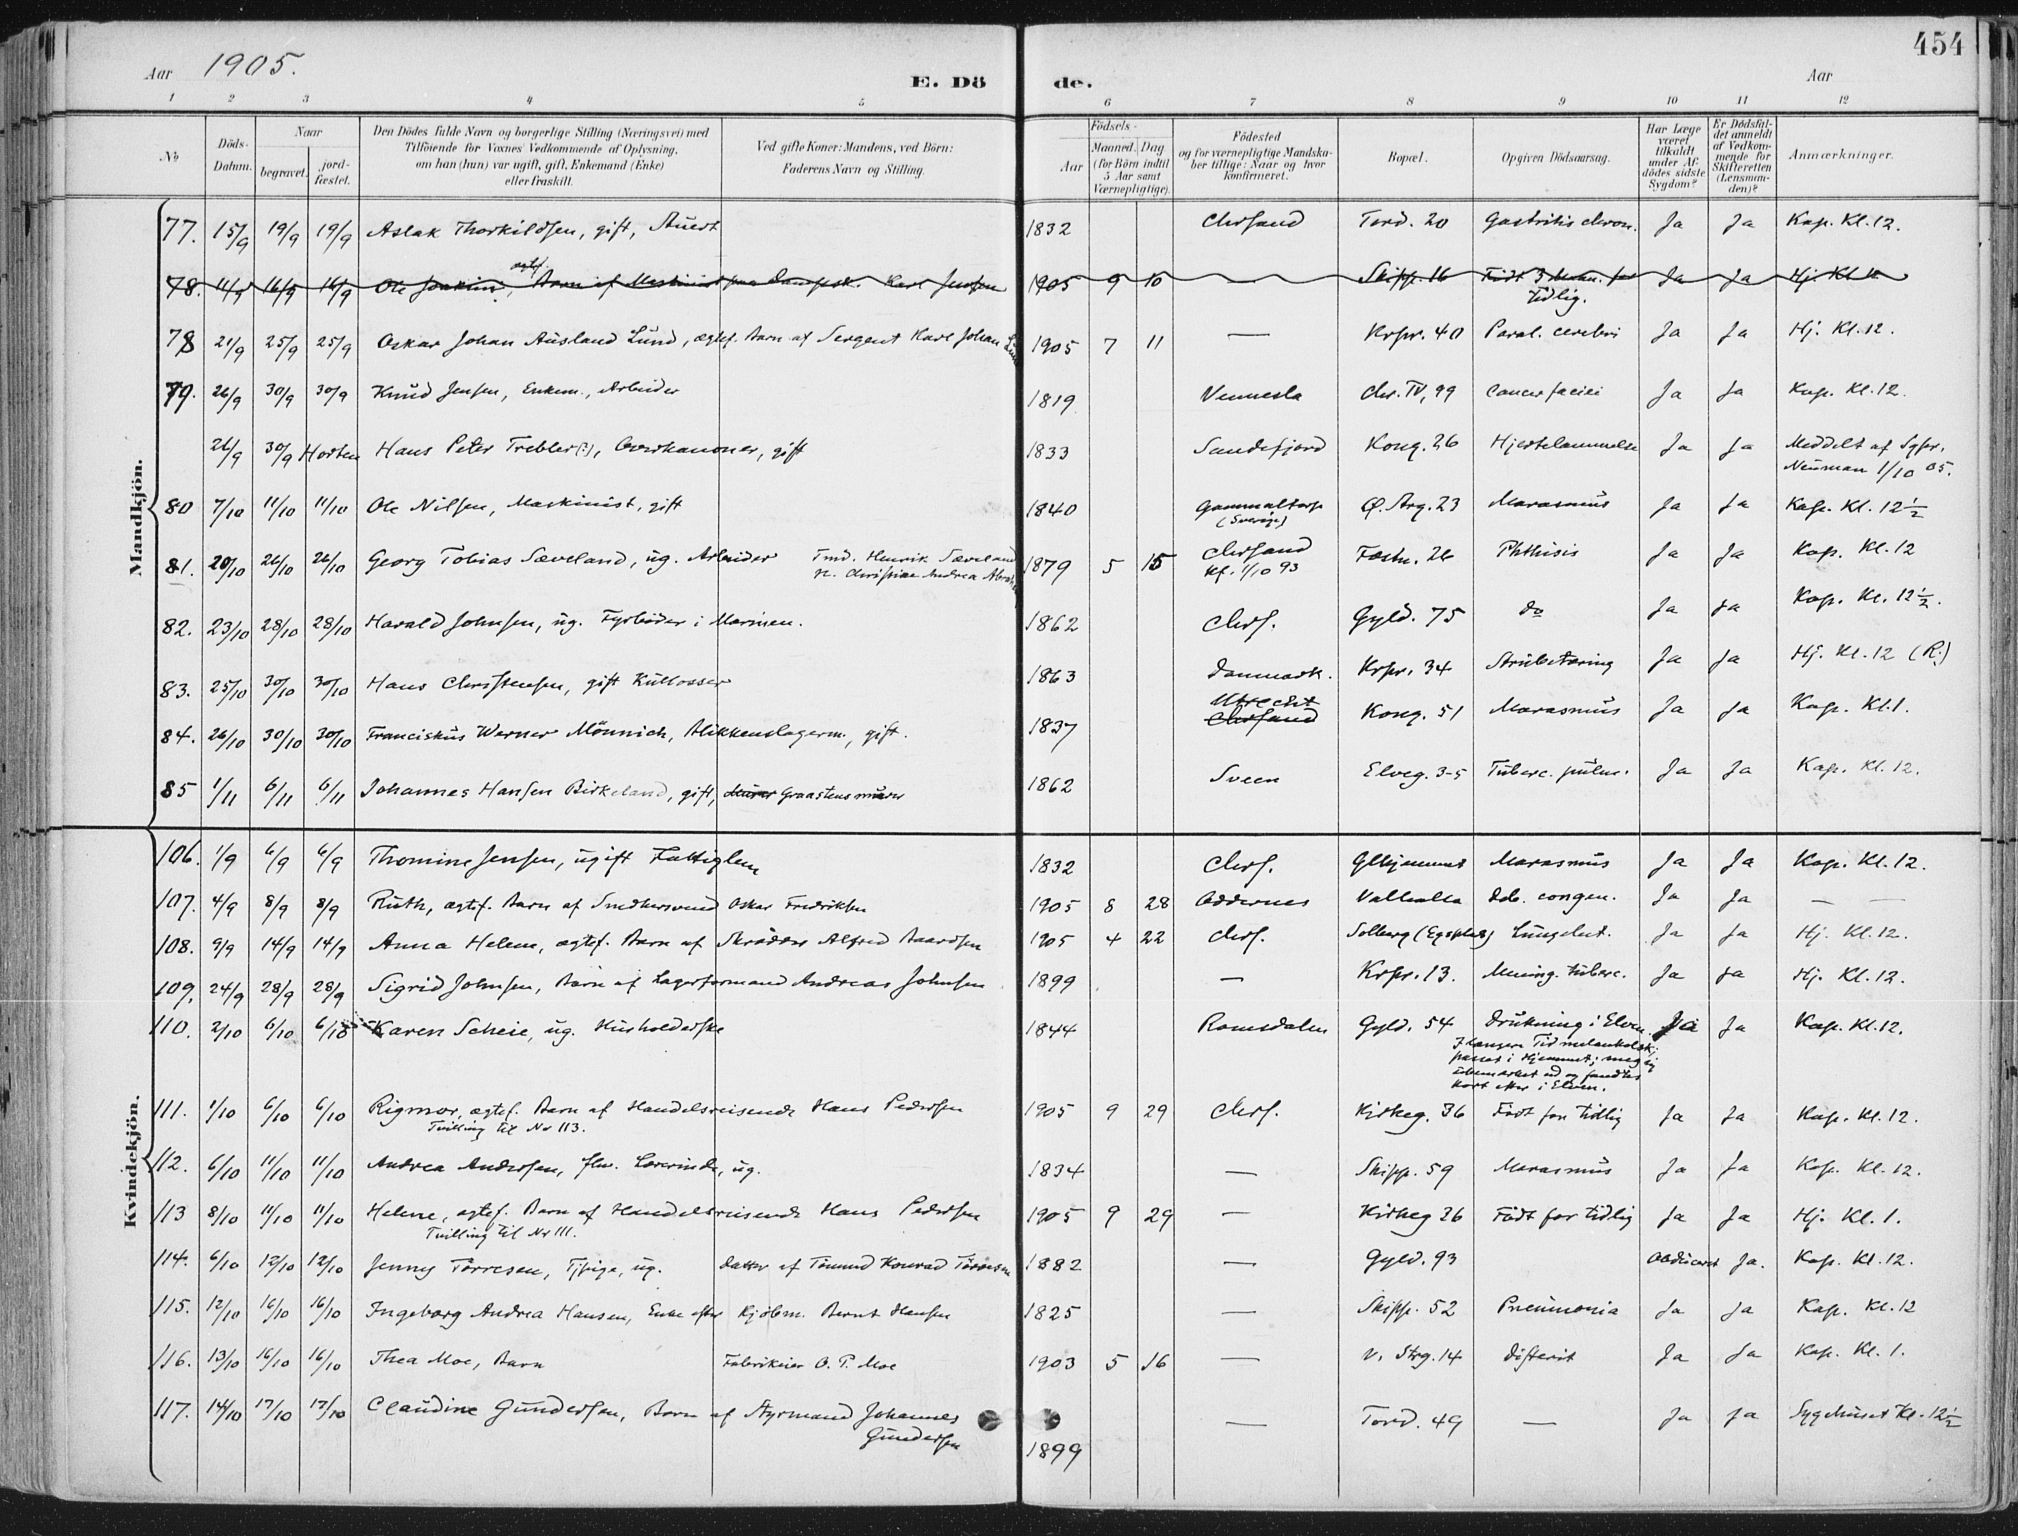 454
Aar 1905.
E. Dö de.
Aar
1 2 3 4 5 6 7 8 9 10 11 12
No
Döds-Datum.
Naar
begravet.
jord-fæstet.
Den Dödes fulde Navn og borgerlige Stilling (Næringsvei) med
Tilföiende for Voxnes Vedkommende af Oplysning,
om han (hun) var ugift, gift, Enkemand (Enke)
eller fraskilt.
Ved gifte Koner: Mandens, ved Börn:
Faderens Navn og Stilling.
Födsels-
Aar
Maaned. Dag
(for Börn indtil
5 Aar samt
Værnepligtige).
Födested
og for værnepligtige Mandska-
ber tillige: Naar og hvor
konfirmeret.
Bopæl.
Opgiven Dödsaarsag.
Har Læge
været
tilkaldt
under Af-
dödes sidste
Sygdom?
Er Dödsfal-
det anmeldt
af Vedkom-
mende for
Skifteretten
(Lensman-
den)?
Anmærkninger.
Mandkjön.
77. 15/9 19/9 19/9 Aslak Thorkildsen, gift, Stuert 1832 Chrsand Tord. 20 Gastritis chron. Ja Ja Kap. Kl. 12.
78. 11/9 16/9 16/9 Ole Joakim, ægtef. Barn af Maskinist paa Dampsk. Karl Jensen 1905 9 10 — Skipp. 16 Født 3 for tidlig. Ja Ja Hj. Kl.
78 21/9 25/9 25/9 Oskar Johan Ausland Lund, ægtef. Barn af Sergent Karl Johan Lund 1905 7 11 — Krpr. 40 Paral. cerebri Ja Ja Hj. Kl. 12.
79. 26/9 30/9 30/9 Knud Jensen, Enkem., Arbeider 1819 Vennesla Chr. IV, 99 Cancer faciei Ja Ja Kap. Kl. 12.
26/9 30/9 Horten Hans Peter Trebler(?), Overkanoner, gift 1833 Sandefjord Kong. 26 Hjertelammelse Ja Ja Meddelt af Sgpr.
Neuman 1/10 05.
80 7/10 11/10 11/10 Ole Nilsen, Maskinist, gift 1840 Gammaltorp (Sverige) Ø. Strg. 23 Marasmus Ja Ja Kap. Kl. 12½
81. 20/10 26/10 26/10 Georg Tobias Sæveland, ug. Arbeider Tmd. Henrik Sæveland 1879 5 15 Chrsand Kf. 1/10 93 Fæstn. 26 Phthisis Ja Ja Kap. Kl. 12
82. 23/10 28/10 28/10 Harald Johnsen, ug. Fyrbøder i Marinen. 1862 Chrs. Gyld. 75 do Ja Ja Kap. Kl. 12½.
83. 25/10 30/10 30/10 Hans Christensen, gift Kullosser 1863 Danmark. Krpr. 34 Strubetæring Ja Ja Hj. Kl. 12 (R.)
84. 26/10 30/10 30/10 Franciskus Werner Mönnich, Blikkenslagerm., gift. 1837 Utrecht Chrsand Kong. 51 Marasmus Ja Ja Kap. Kl. 1.
85 1/11 6/11 6/11 Johannes Hansen Birkeland, gift, Murer Graastensmurer 1862 Sveen Elveg. 3-5 Tuberc. pulm. Ja Ja Kap. Kl. 12.
Kvindekjön.
106. 1/9 6/9 6/9 Thomine Jensen, ugift Fattiglem 1832 Chrs. Glhjemmet Marasmus Ja Ja Kap. Kl. 12.
107. 4/9 8/9 8/9 Ruth, ægtef. Barn af Smedkersvend Oskar Fredriksen 1905 8 28 Oddernes Valhalla Deb. congen. Ja Ja — —
108. 9/9 14/9 14/9 Anna Helene, ægtef. Barn af Skrædder Alfred Baardsen 1905 4 22 Chrs. Solberg (Egsplads) Lungebet. Ja Ja Hj. Kl. 12.
109. 24/9 28/9 28/9 Sigrid Johnsen, Barn af Lagerformand Andreas Johnsen 1899 — Krpr. 13. Mening. tuberc. Ja Ja Hj. Kl. 12.
110. 2/10 6/10 6/10 Karen Scheie, ug. Husholderske 1844 Romsdalen Gyld. 54 Drukning i Elven. Ja Ja Kap. Kl. 12.
I længere Tid melankolsk;
passet i Hjemmet;
ubemærket ud og fandtes
kort efter i Elven.
111. 1/10 6/10 6/10 Rigmor, ægtef. Barn af Handelsreisende Hans Pedersen 1905 9 29 Chrs. Kirkeg. 36 Født for tidlig Ja Ja Kap. Kl. 12.
Tvilling til No 113.
112. 6/10 11/10 11/10 Andrea Andersen, fhv. Lærerinde, ug. 1834 — Skipp. 59 Marasmus Ja Ja Kap. Kl. 12.
113 8/10 11/10 11/10 Helene, ægtef. Barn af Handelsreisende Hans Pedersen 1905 9 29 — Kirkeg 36 Født for tidlig Ja Ja Hj. Kl. 1.
Tvilling til No 111.
114. 6/10 12/10 12/10 Jenny Tørresen, Tjpige, ug. Datter af Tømmd Konrad Tørresen 1882 — Gyld. 93 Obduceret Ja. Kap. Kl. 12.
115. 12/10 16/10 16/10 Ingeborg Andrea Hansen, Enke efter Kjøbm. Bernt Hansen 1825 — Skipp. 52 Pneumonia Ja Ja Kap. Kl. 12
116. 13/10 16/10 16/10 Thea Moe, Barn Fabrikeier O. P. Moe 1903 5 16 — V. Strg. 14 Difterit Ja Ja Kap. Kl. 1.
117. 14/10 17/10 17/10 Claudine Gundersen, Barn af Styrmand Johannes Gundersen 1899 — Tord. 49 — Ja Ja Sygehuset Kl. 12½